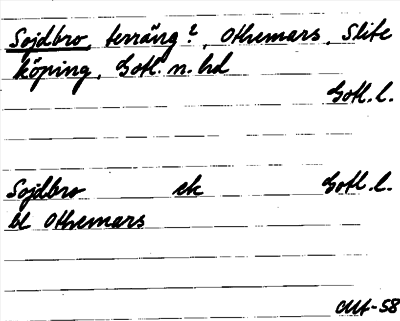 Sojdbro, terräng?, Othemars, Slite
köping, Gotl. n. hd
Gotl. l.
Sojdbro ek Gotl. l.
bl Othemars